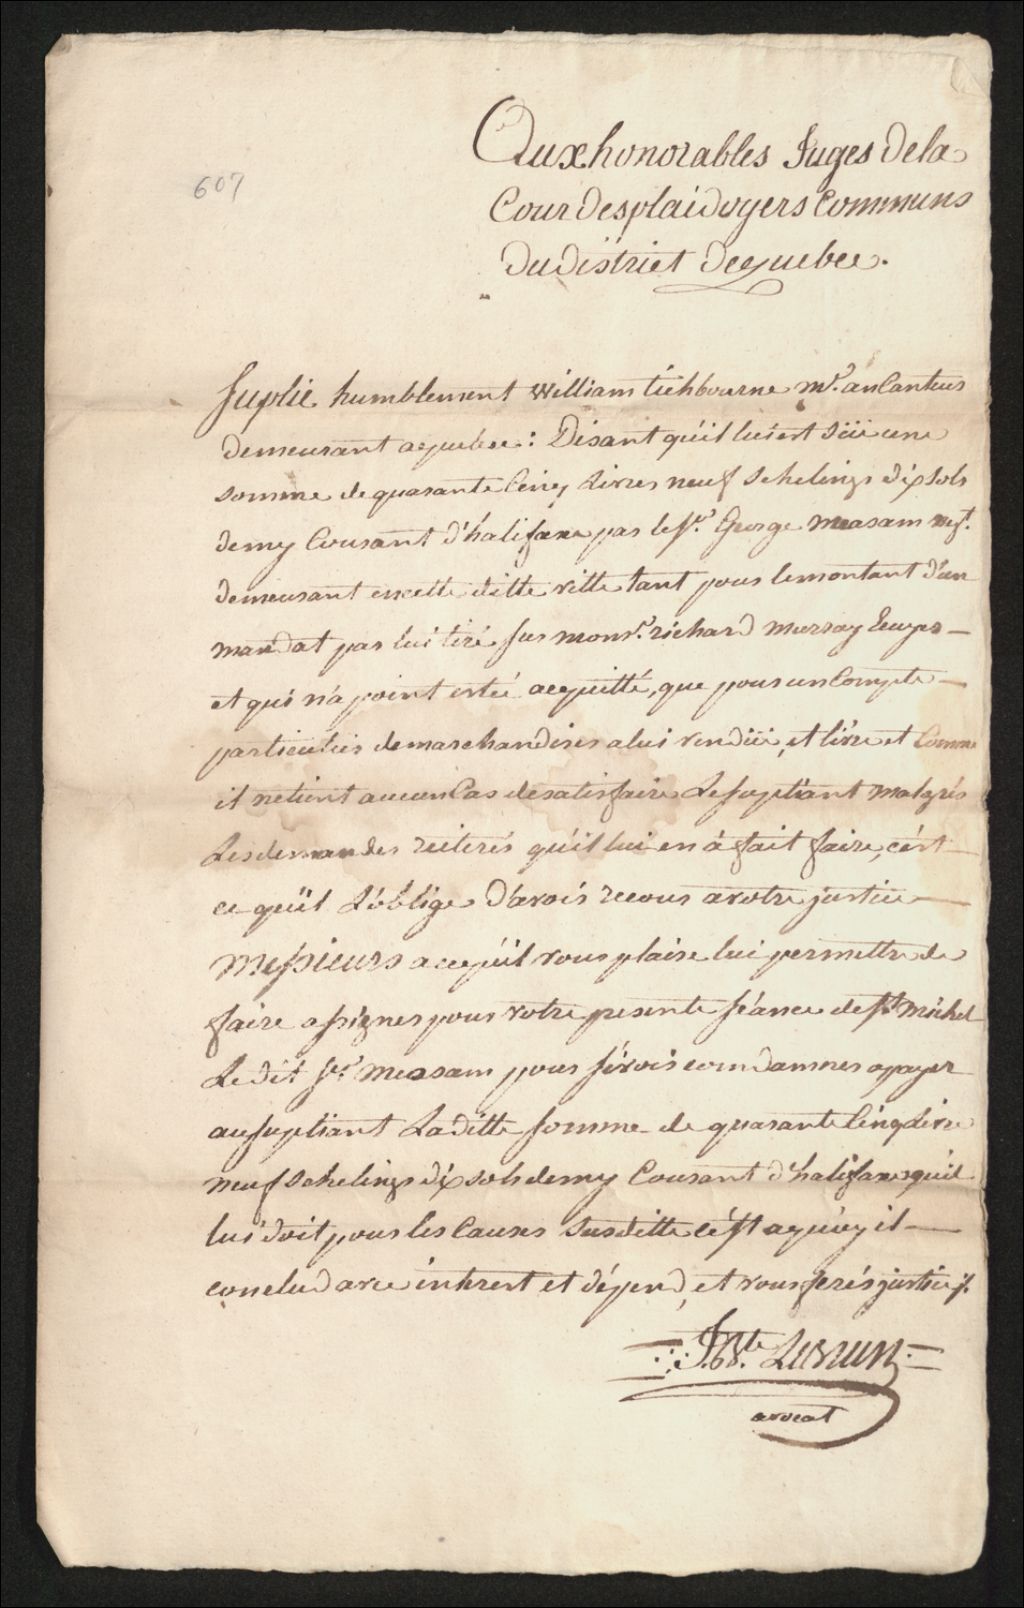 607
Aux honorables Juges de la
Cour des plaidoyers Communs
du district de quebec.
Suplie humblement William tichbourne md. anCanteur
demeurant a quebec : Disant qu'il lui est düe une
somme de quarante Cinq Livres neuf Schelings dix sols
demy Courant d'halifaxe par le Sr. George Measam negt.
demeurant en cette ditte ville tant pour le montant d'un
mandat par lui tiré sur monsr. richard Murray Ecuyer —
et qui n'a point estée acquitté, que pour un Compte —
particulier de marchandises a lui vendüe, et livré et Comme
il ne tient aucun Cas de satisfaire Le supliant malgrés
Les demandes reiterés qu'il lui en à fait faire, c'est —
ce qu'il L'oblige d'avoir recour a votre justice —
Messieurs a ce qu'il vous plaise lui permettre de
faire assigner pour votre presente séance de St. Michel
Le dit Sr. Measam pour sévoir comdamner a payer
au supliant La ditte somme de quarante Cinq Livre
neuf Schelings dix sols demy Courant d'halifaxe qu'il
lui doit pour les Causes susditte c'est a quoy il —
conclud avec interest et dépend, et vous ferés justice ./.
J. Bte. LeBrun
avocat